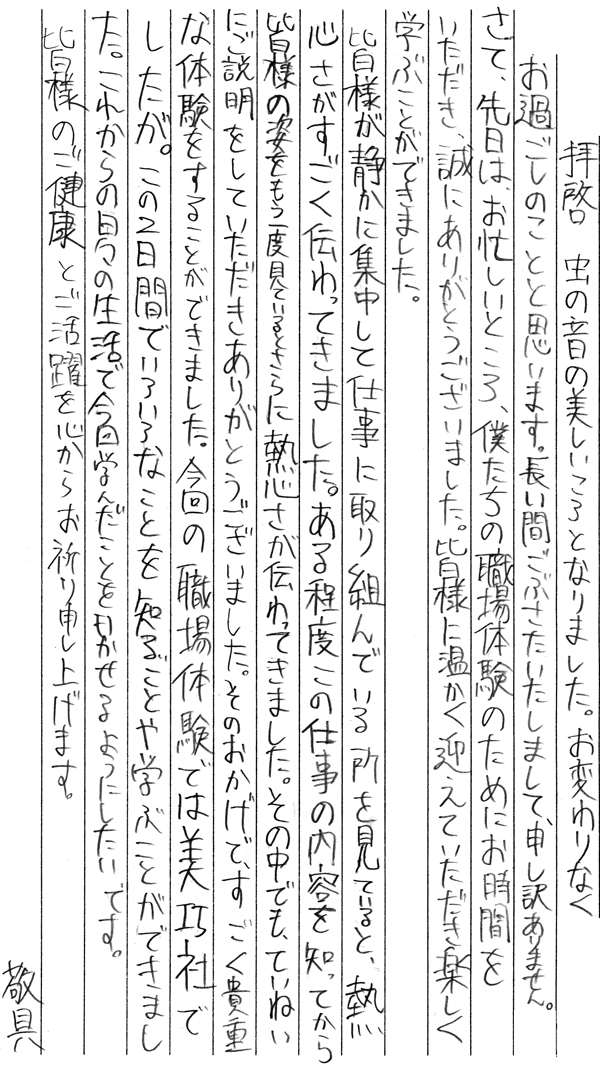 拝啓　虫の音の美しいころとなりました。お変わりなく
お過ごしのことと思います。長い間ごぶさたいたしまして、申し訳ありません。
さて、先日は、お忙しいところ、僕たちの職場体験のためにお時間を
いただき、誠にありがとうございました。皆様に温かく迎えていただき楽しく
学ぶことができました。
皆様が静かに集中して仕事に取り組んでいる所を見ていると、熱
心さがすごく伝わってきました。ある程度この仕事の内容を知ってから
皆様の姿をもう一度見ているとさらに熱心さが伝わってきました。その中でも、ていねい
にご説明をしていただきありがとうございました。そのおかげで、すごく貴重
な体験をすることができました。今回の職場体験では美巧社で
したが。この2日間でいろいろなことを知ることや学ぶことができまし
た。これからの日々の生活で今回学んだことを生かせるようにしたいです。
皆様のご健康とご活躍を心からお祈り申し上げます。
敬具